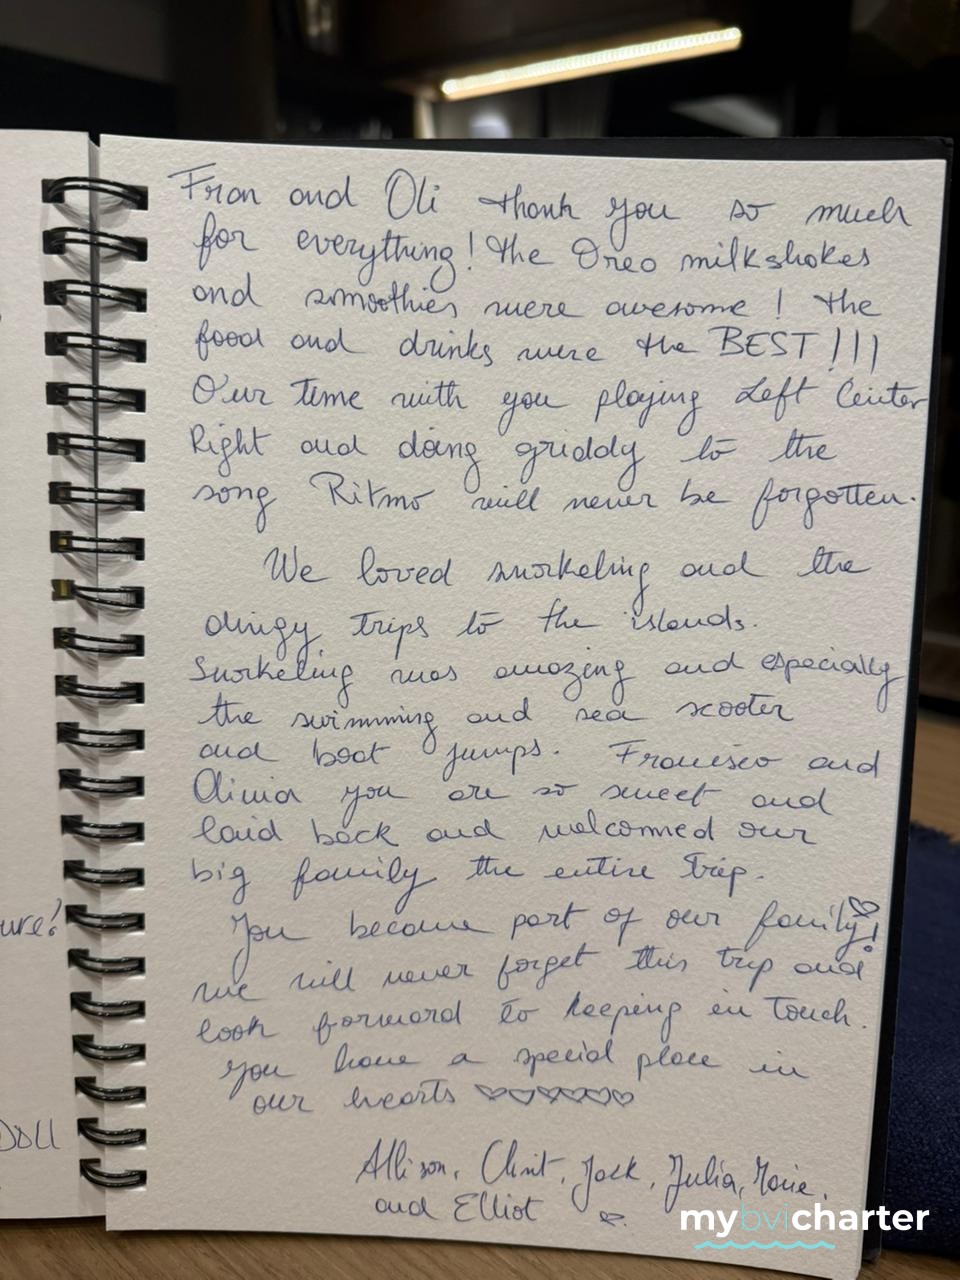 Fran and Oli thank you so much
for everything! the Oreo milkshakes
and smoothies were awesome! the
food and drinks were the BEST!!!
Our time with you playing Left Center
Right and doing griddy to the
song Ritmo will never be forgotten.
We loved snorkeling and the
dingy trips to the islands.
Snorkeling was amazing and especially
the swimming and sea scooter
and boat jumps. Francisco and
Olivia you are so sweet and
laid back and welcomed our
big family the entire trip.
You became part of our family!
we will never forget this trip and
look forward to keeping in touch.
you have a special place in
our hearts ♡♡♡♡♡♡
Allison, Clint, Jack, Julia,
and Elliot
ure!
DOLL
mybvicharter